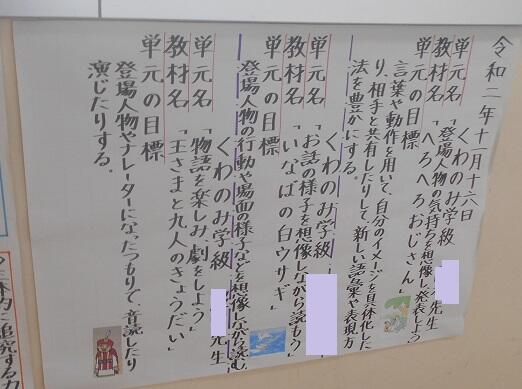 令和二年十一月十六日
くわのみ学級 先生
単元名「登場人物の気持ちを想像し発表しよう」
教材名「へろへろおじさん」
単元の目標
言葉や動作を用いて、自分のイメージを具体化した
り、相手と共有したりして新しい語彙や表現方
法を豊かにする。
くわのみ学級
単元名「お話の様子を想像しながら読もう」
教材名「いなばの白ウサギ」
単元の目標
登場人物の行動や場面の様子などを想像しながら読む。
くわのみ学級 先生
単元名「物語を楽しみ、劇をしよう」
教材名「王さまと九人のきょうだい」
単元の目標
登場人物やナレーターになったつもりで、音読したり
演じたりする。
体的に追究する力